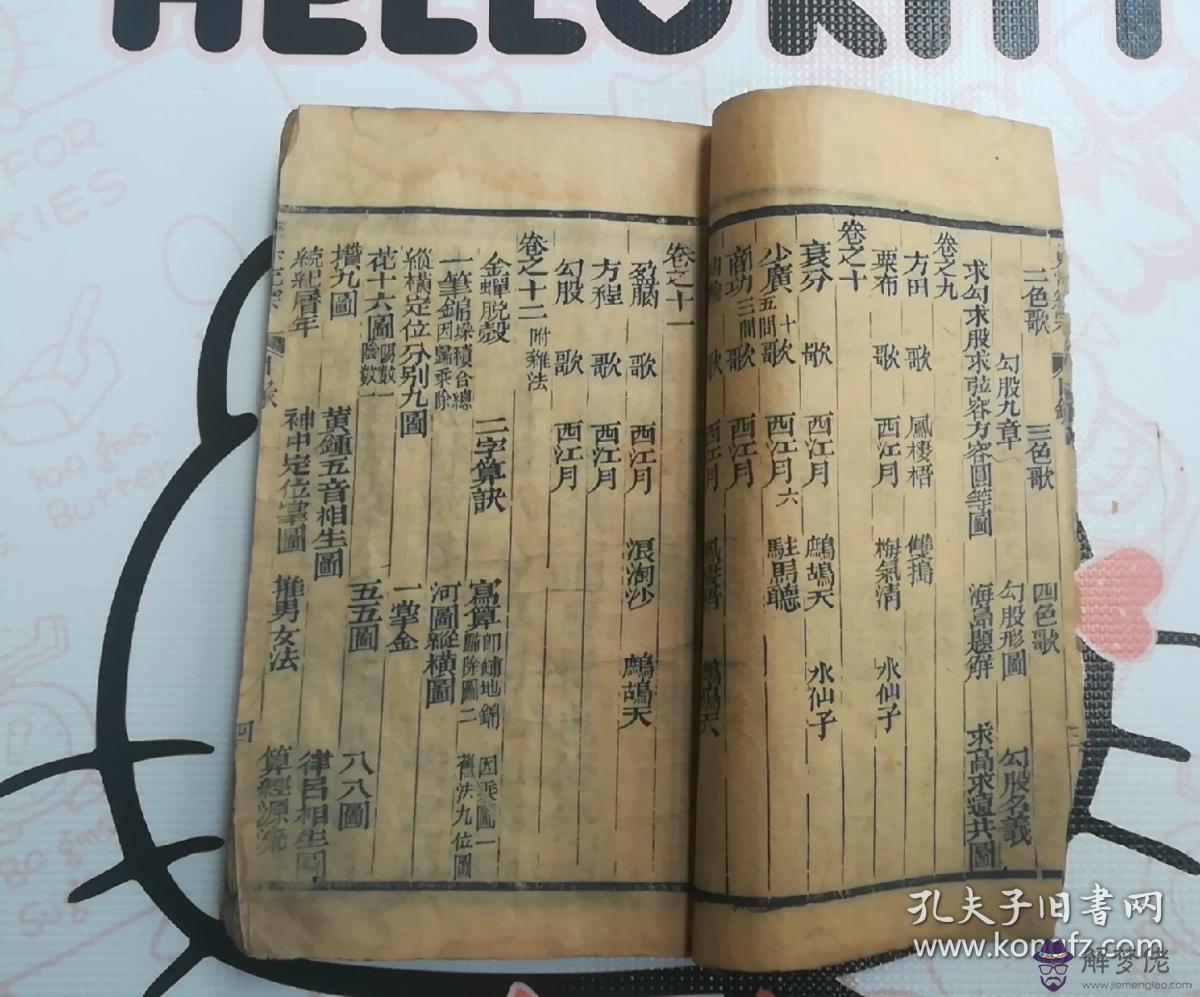 HELLO KITTY
二色歌 三色歌 四色歌
勾股九章 勾股形圖 勾股名義
求勾求股求弦容方容圓等圖 海島題解 求高求遠共圖
卷之九
方田 歌 鳳棲梧 雙搗
粟布 歌 西江月 梅氣清 水仙子
卷之十
衰分 歌 西江月 鷓鴣天 水仙子
少廣五問 十歌 西江月六 駐馬聽
商功三問 歌 西江月
歌 西江月 鷓鴣天
卷之十一
盈朒 歌 西江月 浪淘沙 鷓鴣天
方程 歌 西江月
勾股 歌 西江月
卷之十二 附雜法
金蟬脫殼 二字算訣 寫算 即鋪地錦 歸除圖二 因乘圖一
一筆錦 因歸乘除 河圖縱橫圖 舊法九位圖
縱橫定位分別九圖 一掌金
花十六圖 陽數一 陰數一 五五圖 八八圖
攢九圖 黃鍾五音相生圖 律呂相生圖
統紀曆年 神中定位掌圖 推男女法 算經源流
四
孔夫子旧书网
www.kongfz.com
解梦佬
www.jiemenglao.com
FOR
KIES
100 gms.
Butter
80 gms
Sug